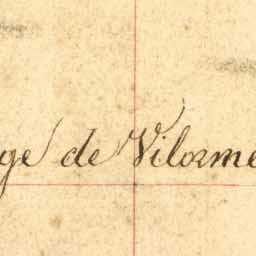 ge de Vilorme